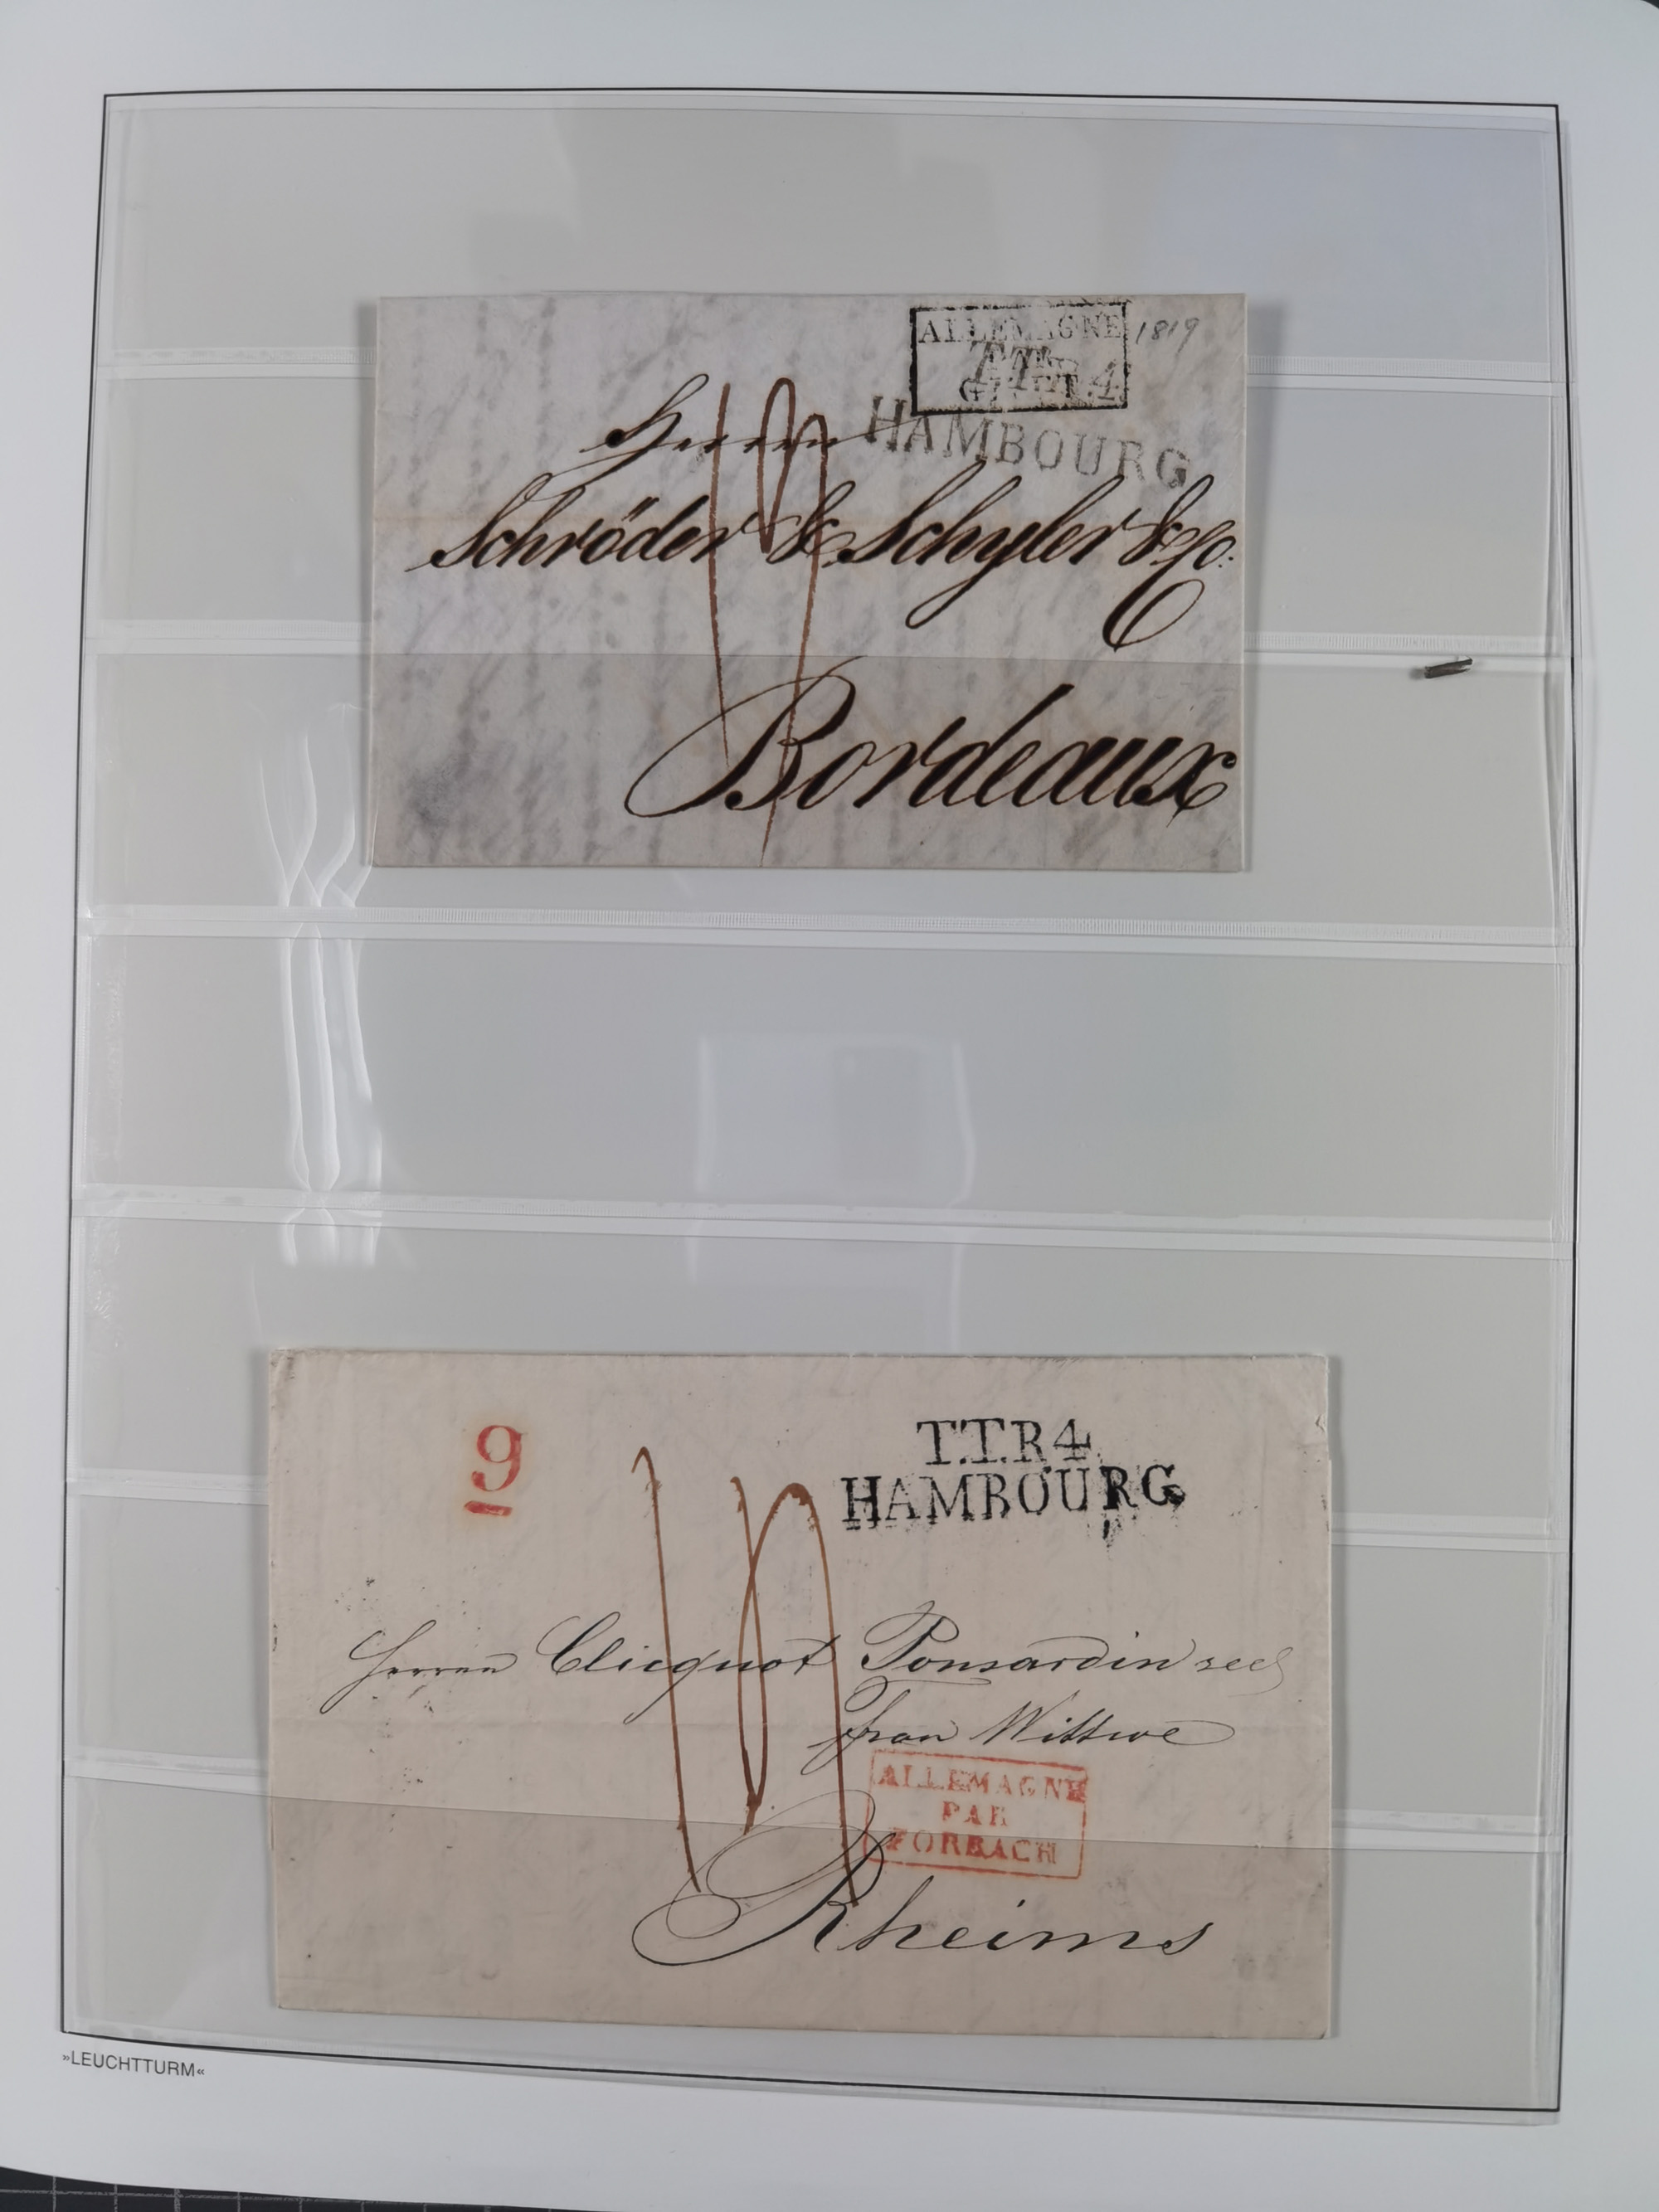 ALLEMAGNE 1819
HAMBOURG
Herrn
Schröder & Schyler & Co:
Bordeaux
9
T.T.R.4
HAMBOURG
Herren Clicquot Ponsardin seel
frau Wittwe
ALLEMAGNE
PAR
FORBACH
Rheims
»LEUCHTTURM«